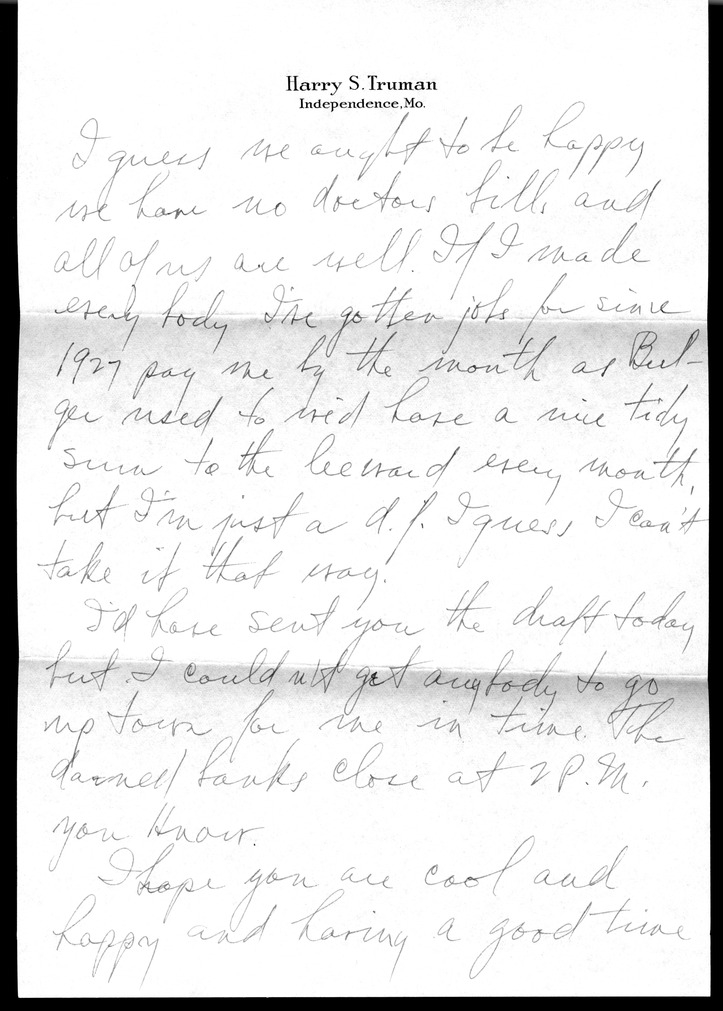 Harry S. Truman
Independence, Mo.
I guess we ought to be happy
we have no doctors bills and
all of us are well. If I made
every body I've gotten jobs for since
1927 pay me by the month as Bul-
ger used to we'd have a nice tidy
sum to the leeward every month,
but I'm just a d.f. I guess I can't
take it that way.
I'd have sent you the draft today
but I couldn't get anybody to go
up town for me in time. The
darned banks close at 2 P.M.
you know.
I hope you are cool and
happy and having a good time